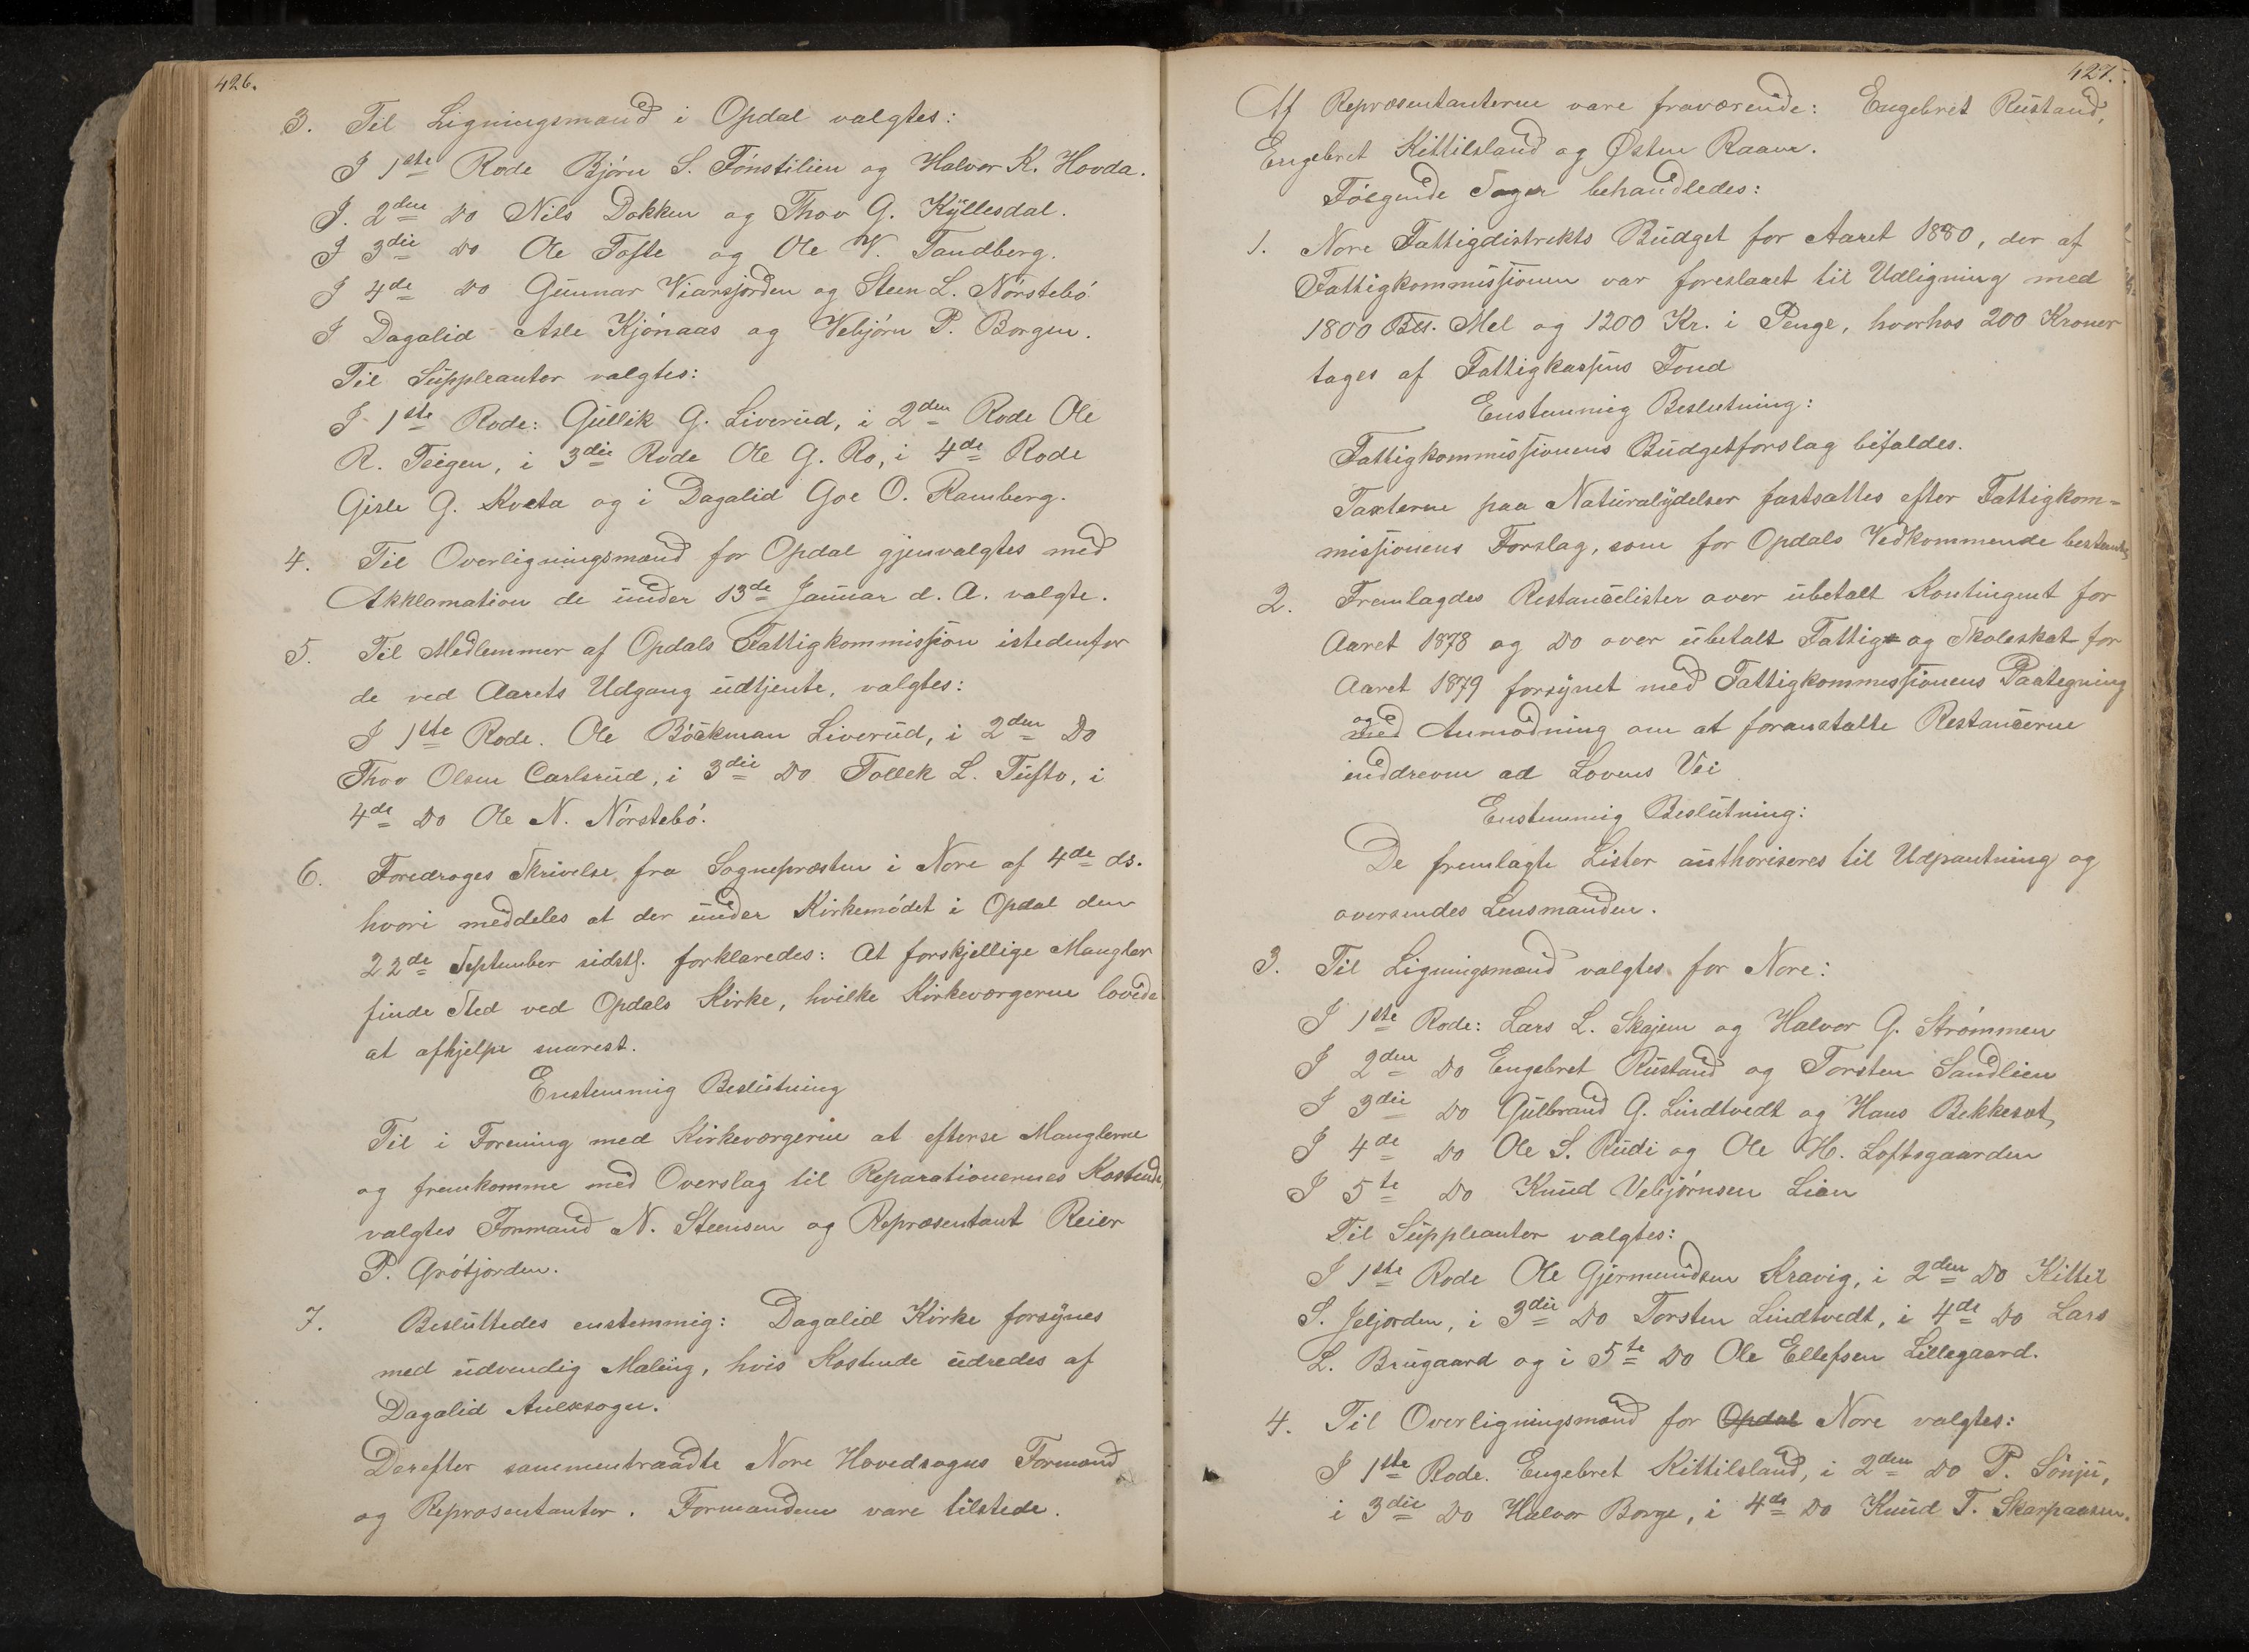 426.
3. Til Ligningsmænd i Opdal valgtes:
I 1ste Rode Bjørn S. Fønstilien og Halvor K. Hovda.
I. 2den Do Nils Dokken og Thov G. Kyllesdal.
I 3die Do Ole Tofte og Ole V. Tandberg.
I 4de Do Gunnar Viarsjorden og Steen L. Nørstebø.
I Dagalid Asle Kjønaas og Vebjørn P. Borgen.
Til Suppleanter valgtes:
I 1ste Rode: Gullik G. Liverud, i 2den Rode Ole
R. Teigen, i 3die Rode Ole G. Ro, i 4de Rode
Gisle G. Kvæta og i Dagalid Goe O. Ramberg.
4. Til Overligningsmænd for Opdal gjenvalgtes med
Akklamation de under 13de Januar d. A. valgte.
5. Til Medlemmer af Opdals Fattigkommission istedenfor
de ved Aarets Udgang udtjente, valgtes:
I 1ste Rode. Ole Böckman Liverud, i 2den Do
Thov Olsen Carlsrud, i 3die Do Tollek L. Tufto, i
4de Do Ole N. Nørstebø.
6. Foredroges Skrivelse fra Sognepræsten i Nore af 4de ds.
hvori meddeles at der under Kirkemødet i Opdal den
22de September sidstl. forklaredes: At forskjellige Mangler
finde Sted ved Opdals Kirke, hvilke Kirkeværgerne lovede
at afhjelpe snarest.
Enstemmig Beslutning
Til i Forening med Kirkeværgerne at efterse Manglerne
og fremkomme med Overslag til Reparationernes Kostende,
valgtes Formand N. Steensen og Repræsentant Reier
P. Grøtjorden.
7. Besluttedes enstemmig: Dagalid Kirke forsynes
med udvendig Maling, hvis Kostende udredes af
Dagalid Anexsogn.
Derefter sammentraadte Nore Hovedsogns Formænd
og Repræsentanter. Formændene vare tilstede.
427.
Af Repræsentanterne vare fraværende: Engebret Rustand,
Engebret Kittilsland og Østen Raaen.
Følgende Sager behandledes:
1. Nore Fattigdistrikts Budget for Aaret 1880, der af
Fattigkommissionen var foreslaaet til Udligning med
1800 Mel og 1200 Kr. i Penge, hvorhos 200 Kroner
tages af Fattigkassens Fond
Enstemmig Beslutning:
Fattigkommissionens Budgetforslag bifaldes.
Taxterne paa Naturalydelser fastsattes efter Fattigkom=
missionens Forslag, som for Opdals Vedkommende bestemtes
2. Fremlagdes Restancelister over ubetalt Kontingent for
Aaret 1878 og Do over ubetalt Fattig= og Skoleskat for
Aaret 1879 forsynet med Fattigkommissionens Paategning
og
med Anmodning om at foranstalte Restancerne
inddrevne ad Lovens Vei
Enstemmig Beslutning:
De fremlagte Lister authoriseres til Udpantning og
oversendes Lensmanden.
3. Til Ligningsmænd valgtes for Nore:
I 1ste Rode: Lars L. Skajem og Halvor G. Strømmen
I 2den Do Engebret Rustand og Torsten Sandlien
I 3die Do Gulbrand G. Lindtvedt og Hans Bekkeset,
I 4de Do Ole S. Rudi og Ole H. Loftsgaarden
I 5te Do Knud Vebjørnsen Lien
Til Suppleanter valgtes:
I 1ste Rode Ole Gjermundsen Kravig, i 2den Do Kittil
S. Jeljorden, i 3die Do Torsten Lindtvedt, i 4de Do Lars
L. Brugaard og i 5te Do Ole Ellefsen Lillegaard.
4. Til Overligningsmænd for Opdal Nore valgtes:
I 1ste Rode. Engebret Kittilsland, i 2den Do P. Sønju,
i 3die Do Halvor Borge, i 4de Do Knud T. Skarpaasen.